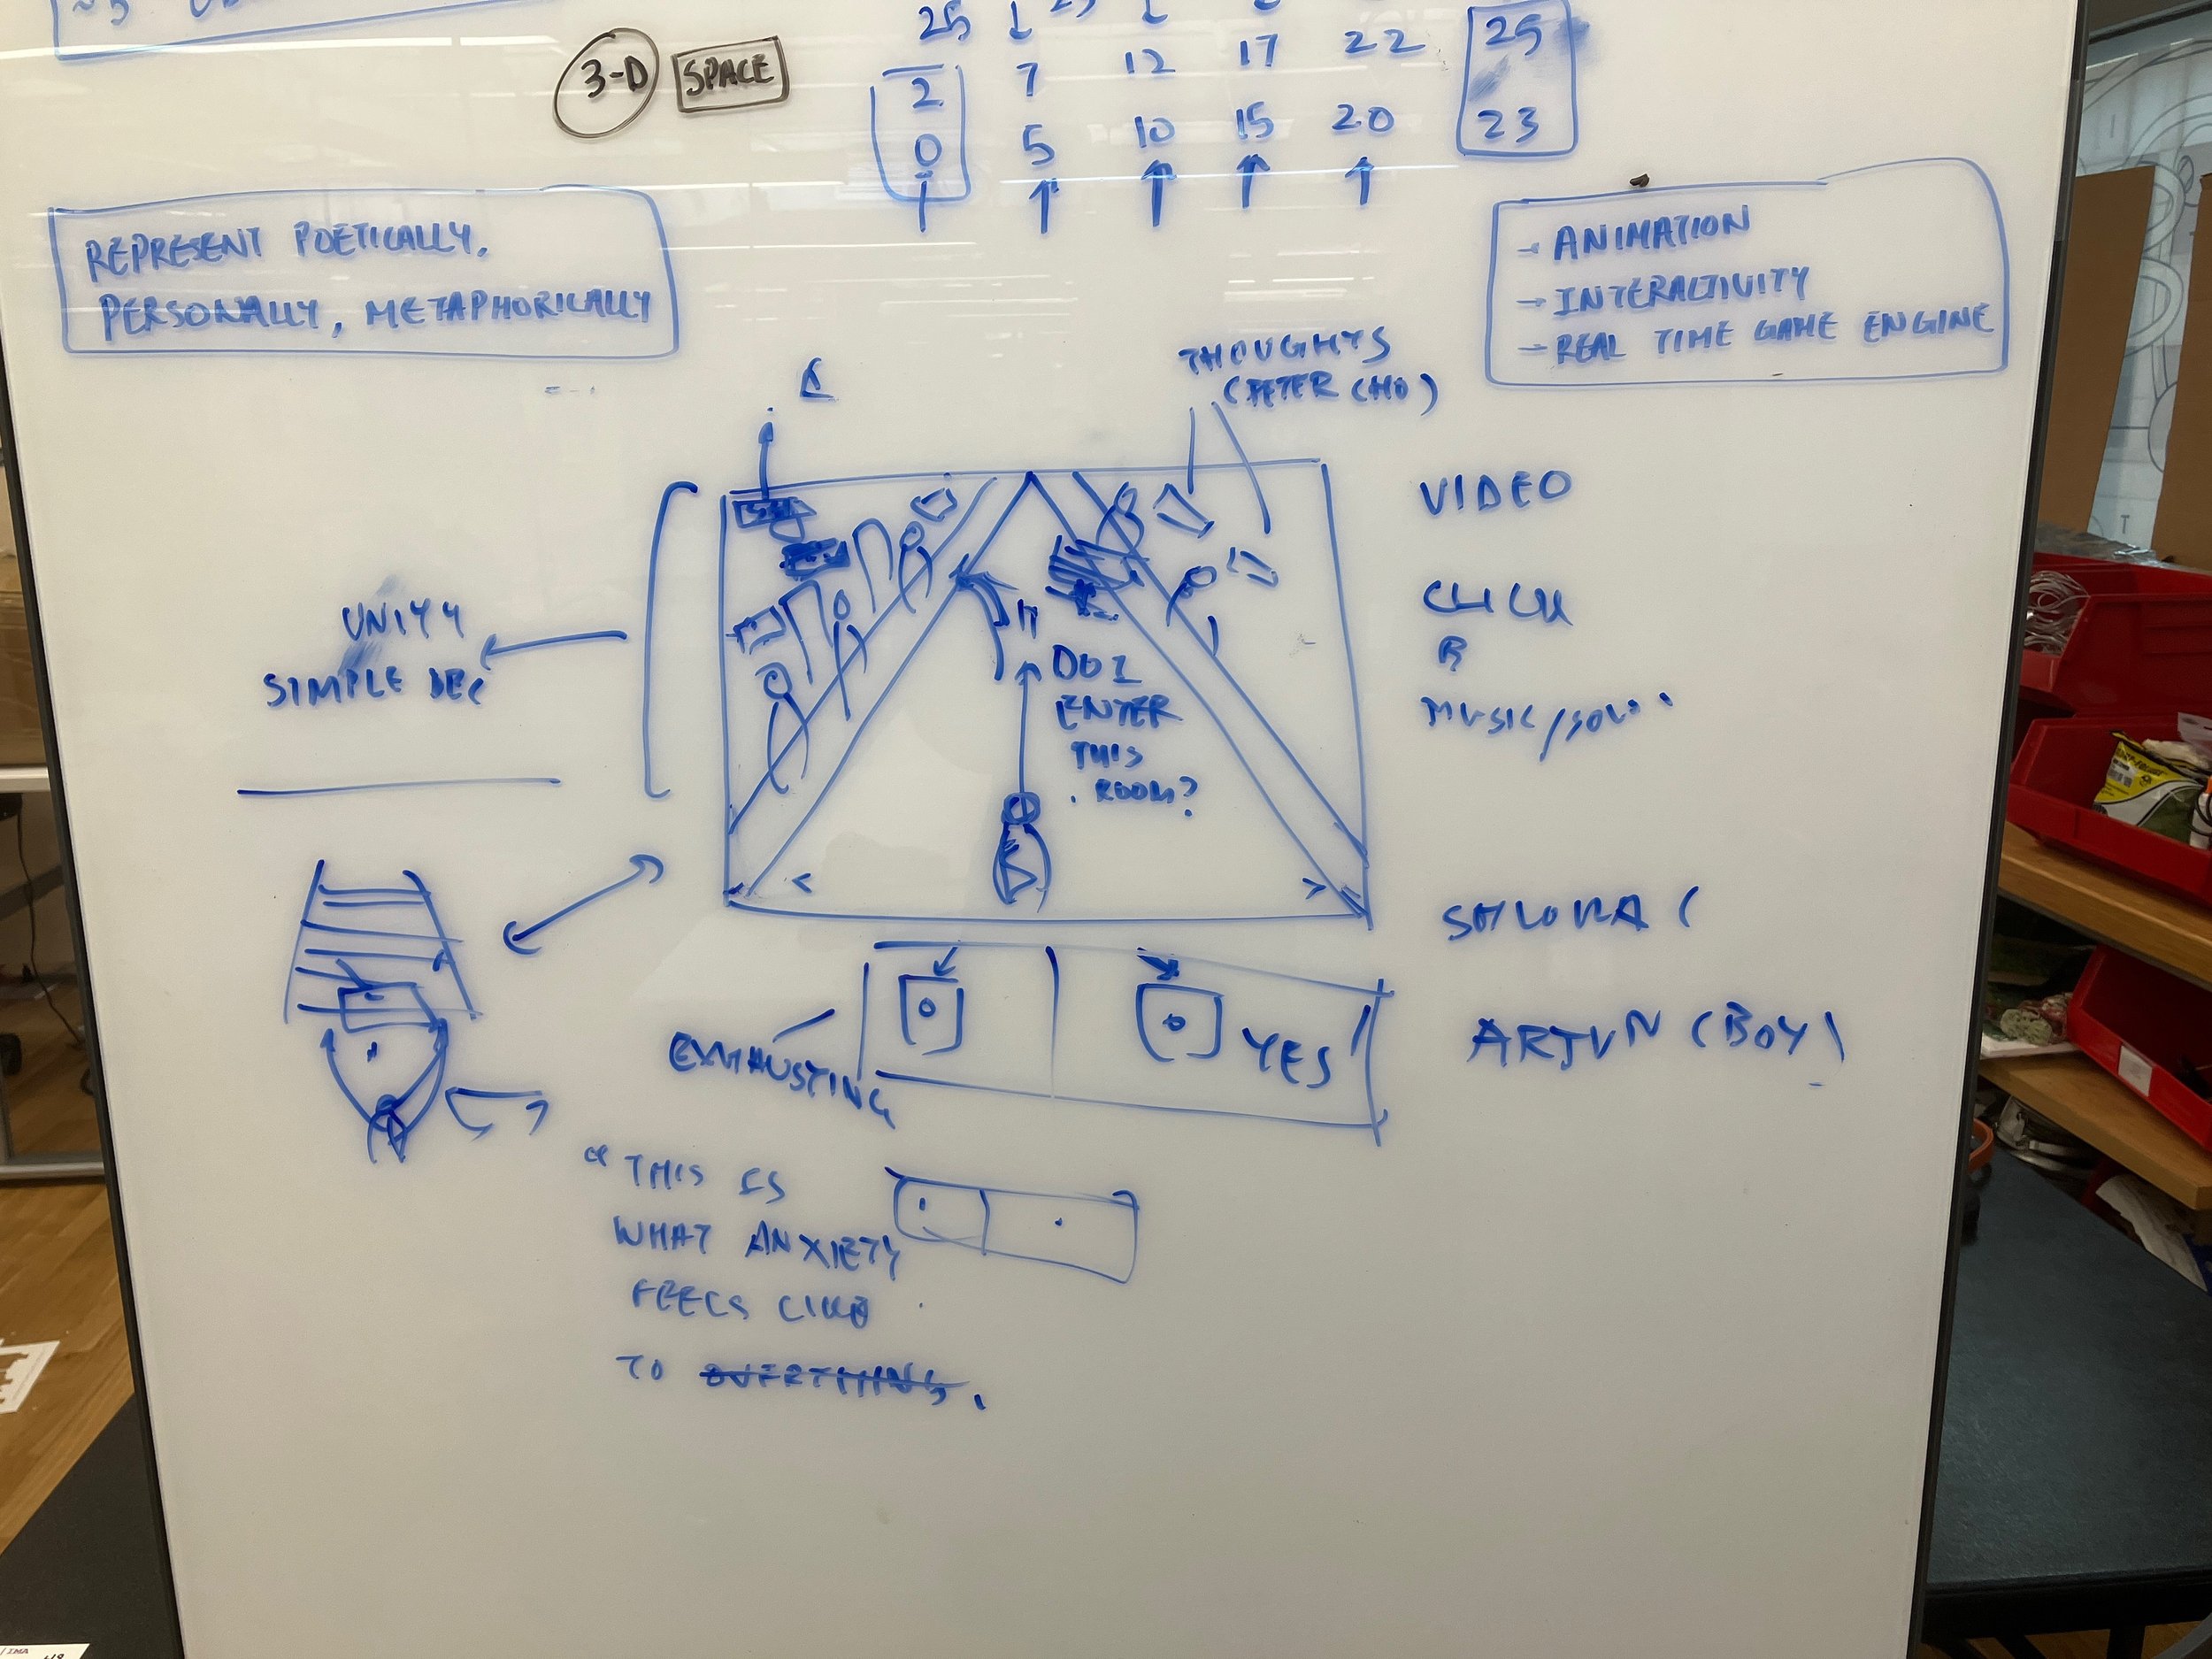 3-D SPACE
25
2 7 12 17 22 25
0 5 10 15 20 23
REPRESENT POETICALLY,
PERSONALLY, METAPHORICALLY
→ ANIMATION
→ INTERACTIVITY
→ REAL TIME GAME ENGINE
THOUGHTS
(PETER CHO)
VIDEO
UNITY
SIMPLE
DO I
ENTER
THIS
ROOM?
MUSIC/
EXHAUSTING
YES
ARJUN (BOY)
"THIS IS
WHAT ANXIETY
FEELS LIKE
TO EVERYTHING.